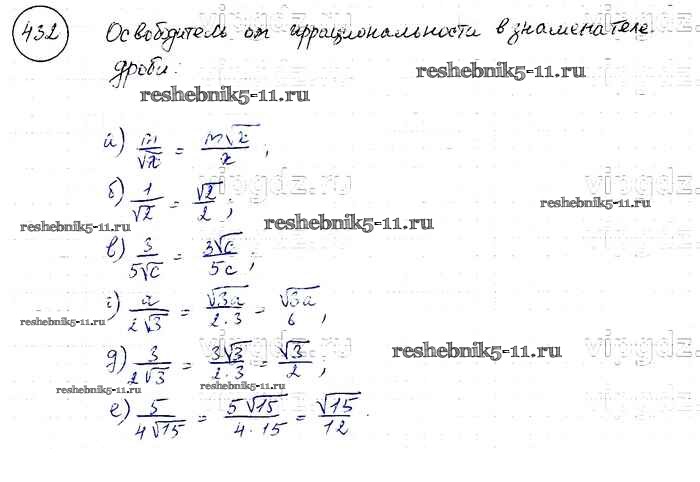 432 Освободитель от иррациональности в знаменателе
дроби:
reshebnik5-11.ru
reshebnik5-11.ru
а) m/√x = m√x/x ;
vipgdz.ru
vipgdz.ru
б) 1/√2 = √2/2 ;
reshebnik5-11.ru
reshebnik5-11.ru
reshebnik5-11.ru
в) 3/5√c = 3√c/5c ;
г) a/2√3 = √3a/2·3 = √3a/6 ,
reshebnik5-11.ru
vipgdz.ru
vipgdz.ru
д) 3/2√3 = 3√3/2·3 = √3/2 ,
reshebnik5-11.ru
reshebnik5-11.ru
reshebnik5-11.ru
е) 5/4√15 = 5√15/4·15 = √15/12 .
vipgdz.ru
vipgdz.ru